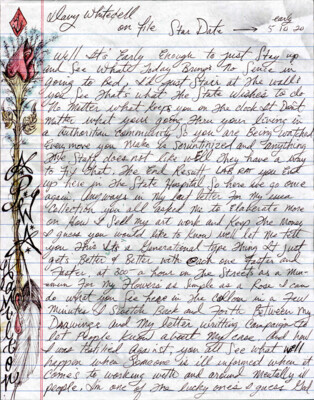 Davy Whitebell
on file Star Date → early 5 to 20
Well It's Early Enough to Just Stay up
and See Whats Today Brings No Sence in
going to Bed, I'll Just Stair at the walls
you See That's what the State Wishes to do
No Matter what keeps you on the clock it Dosnt
matter what your going Threw your living in
a authoritian Community So you are Being Watched
Every move you Make is Scrutinized and if anything
the Staff does not like well they have a way
to fix that. The End Result, you
up here in the State Hospital So here we go once
again. Anyways in My last letter For My
Collection you all Tasked Me to Elaborate More
on How I Sell My art work and keep The Money
I guess you would like to know well let Me tell
you This Its a Generational type Thing It Just
gets Better & Better with Each one Faster and
Faster at 300 a hour in The Streets as a
For My Flowers is Simple as a Rose I can
do what you See here in the in a Few
Minutes I Sketch Back and Forth Between My
Drawings and My letter writting Campaign to
let People know about My Case And how
I was Against, you all See what will
happen when Someone is ill informed when it
Comes to working with and around Mentally ill
people. Im one of The lucky ones I guess